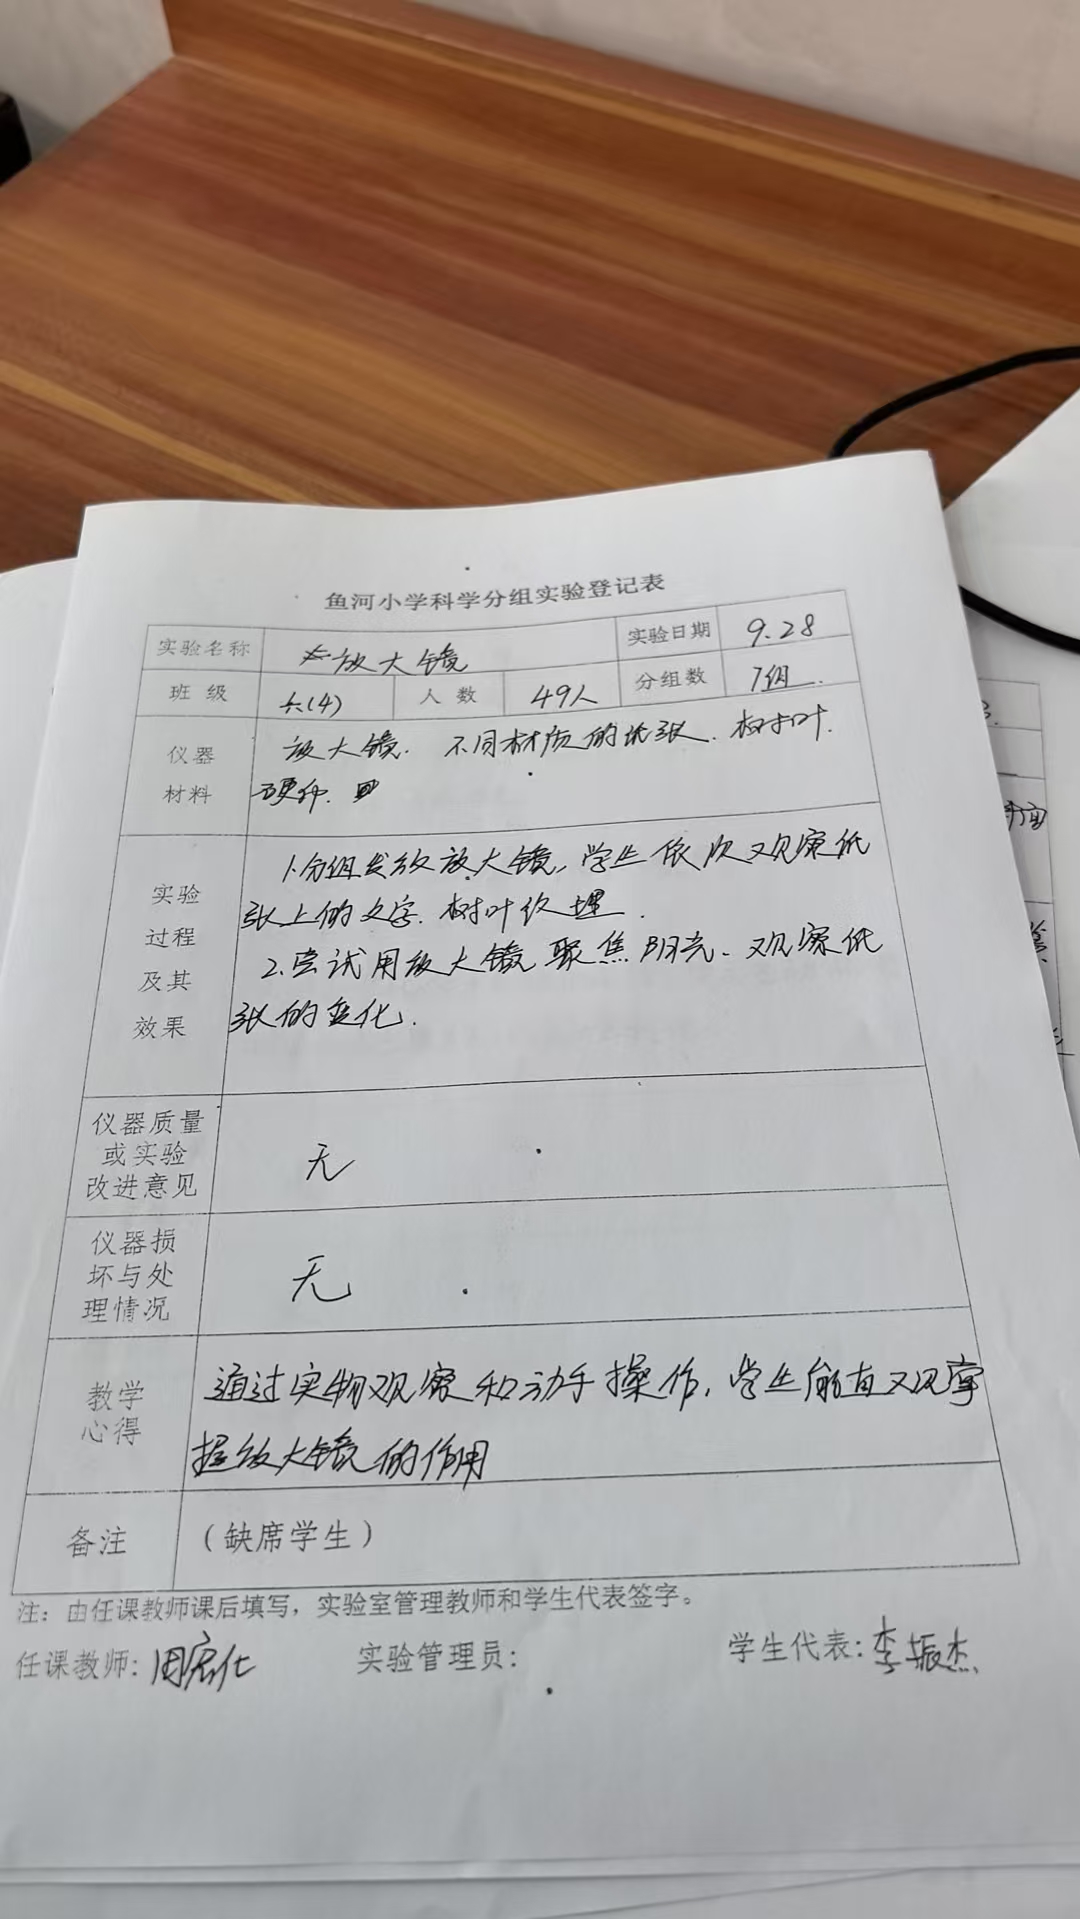 鱼河小学科学分组实验登记表
实验名称 放大镜 实验日期 9.28
班 级 六(4) 人 数 49人 分组数 7组.
仪器 放大镜. 不同材质的纸张. 树叶.
材料 硬币.
实验 1.分组发放放大镜,学生依次观察纸
过程 张上的文字.树叶纹理.
及其 2.尝试用放大镜聚焦阳光、观察纸
效果 张的变化.
仪器质量
或实验 无
改进意见
仪器损
坏与处 无
理情况
教学 通过实物观察和动手操作,学生能直观掌
心得 握放大镜的作用
备注 (缺席学生)
注: 由任课教师课后填写, 实验室管理教师和学生代表签字。
任课教师: 周 实验管理员: 学生代表: 李振杰